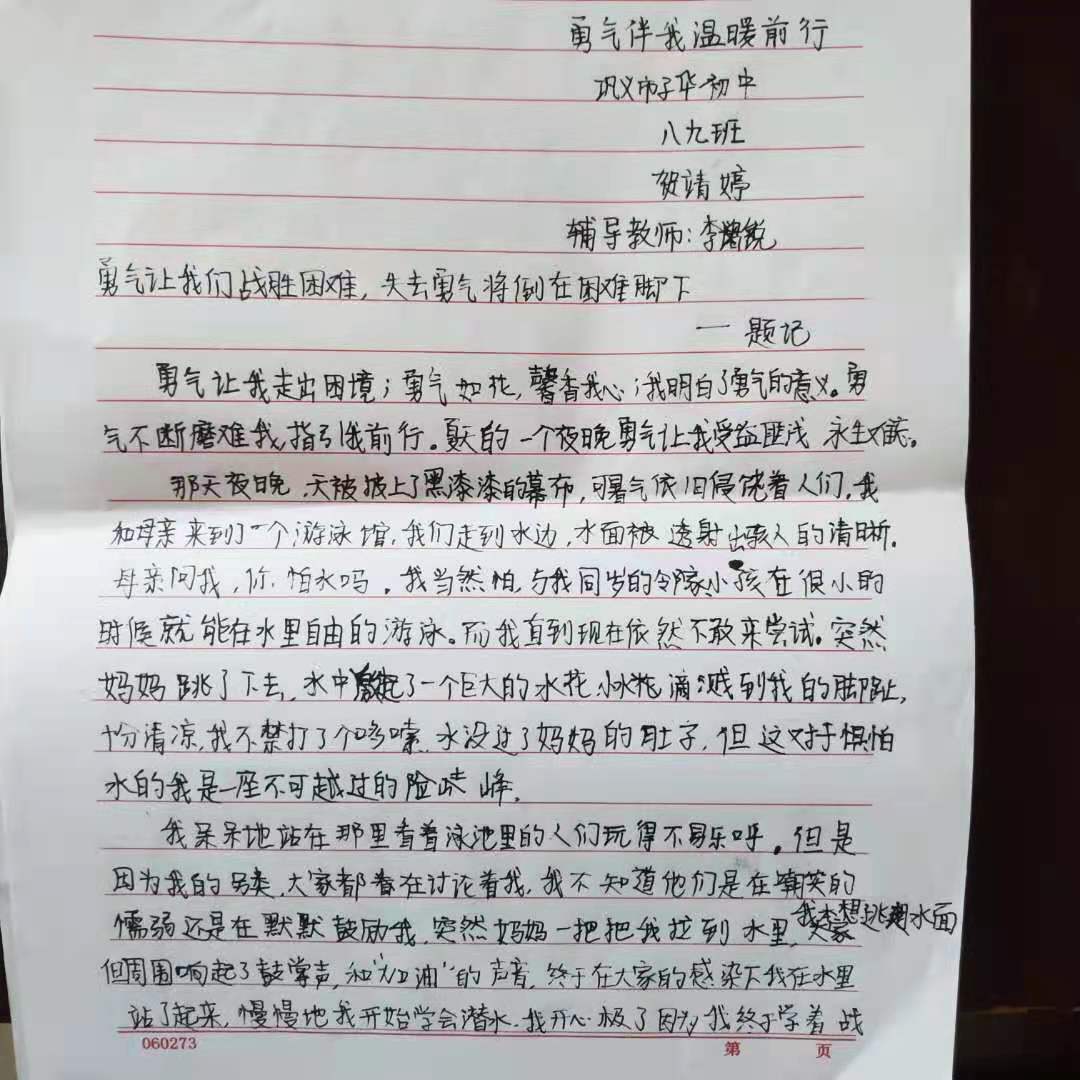 勇气伴我温暖前行
巩义市子华初中
八九班
贺靖婷
辅导教师:李锐
勇气让我们战胜困难,失去勇气将倒在困难脚下
一题记
勇气让我走出困境;勇气如花,馨香我心;我明白了勇气的意义。勇
气不断磨难我,指引我前行。夏天的一个夜晚勇气让我受益匪浅 永生难忘。
那天夜晚,天被披上了黑漆漆的幕布,可暑气依旧侵饶着人们,我
和母亲来到了一个游泳馆,我们走到水边,水面被透射出骇人的清晰。
母亲问我,你怕水吗。我当然怕,与我同岁的邻家小孩在很小的
时候就能在水里自由的游泳。而我直到现在依然不敢来尝试。突然
妈妈跳了下去,水中激起了一个巨大的水花,小水花滴溅到我的脚趾,
十分清凉,我不禁打了个哆嗦,水没过了妈妈的肚子,但这对于惧怕
水的我是一座不可越过的险峰。
我呆呆地站在那里看着泳池里的人们玩得不易乐呼。但是
因为我的另类,大家都着在讨论着我,我不知道他们是在嘲笑的
懦弱还是在默默鼓励我,突然妈妈一把把我拉到水里,我本想逃离水面
但周围响起了鼓掌声,和“加油”的声音,终于在大家的感染下我在水里
站了起来,慢慢地我开始学会潜水,我开心极了因为我终于学着战
060273 第 页